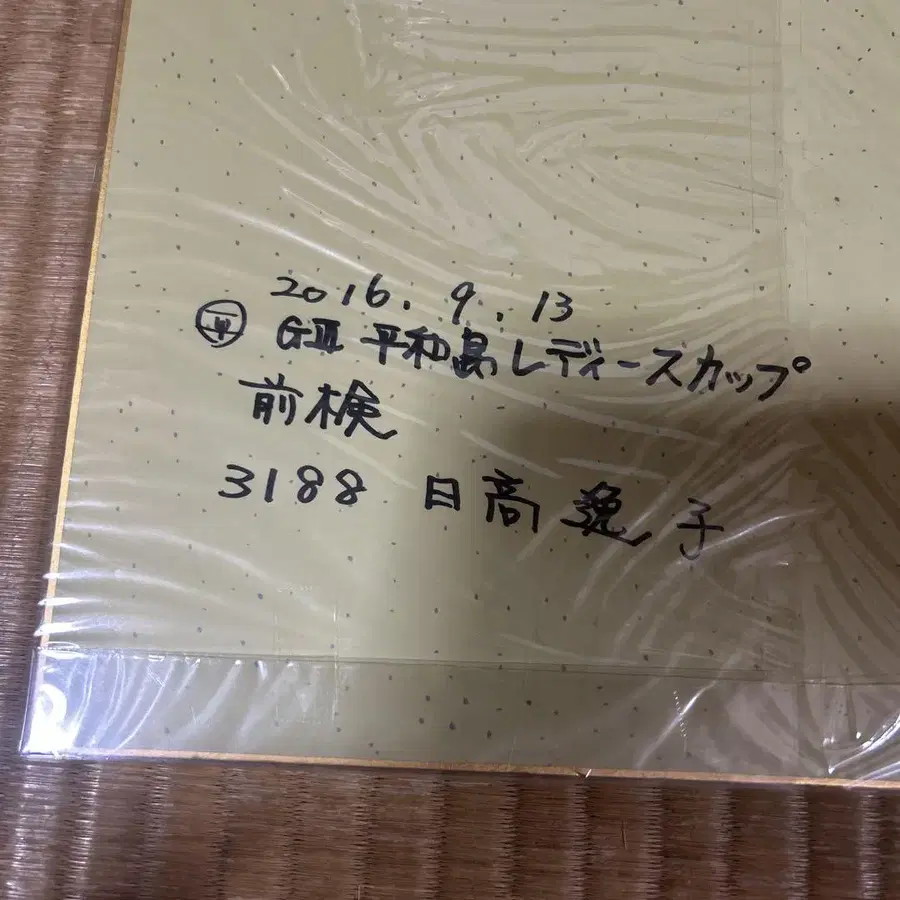 2016.9.13
GⅢ 平和島レディースカップ
前検
3188 日高逸子